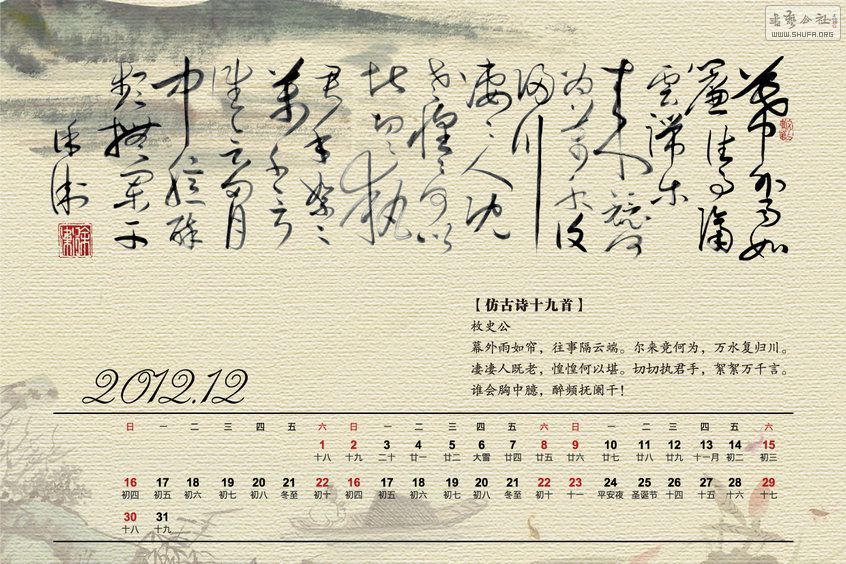 書藝公社
WWW.SHUFA.ORG
幕外雨如
簾往事隔
雲端尔
来竟何
为萬水復
歸川
凄凄人既
老惶惶何以
堪切切執
君手絮絮
萬千言
中臆醉
頻撫闌干
【仿古诗十九首】
枚吏公
幕外雨如帘，往事隔云端。尔来竟何为，万水复归川。
凄凄人既老，惶惶何以堪。切切执君手，絮絮万千言。
谁会胸中臆，醉频抚阑干！
2012.12
日 一 二 三 四 五 六 日 一 二 三 四 五 六 日 一 二 三 四 五 六
1 2 3 4 5 6 7 8 9 10 11 12 13 14 15
十八 十九 二十 廿一 廿二 大雪 廿四 廿五 廿六 廿七 廿八 廿九 十一月 初二 初三
16 17 18 19 20 21 22 16 17 18 19 20 21 22 23 24 25 26 27 28 29
初四 初五 初六 初七 初八 冬至 初十 初四 初五 初六 初七 初八 冬至 初十 十一 平安夜 圣诞节 十四 十五 十六 十七
30 31
十八 十九